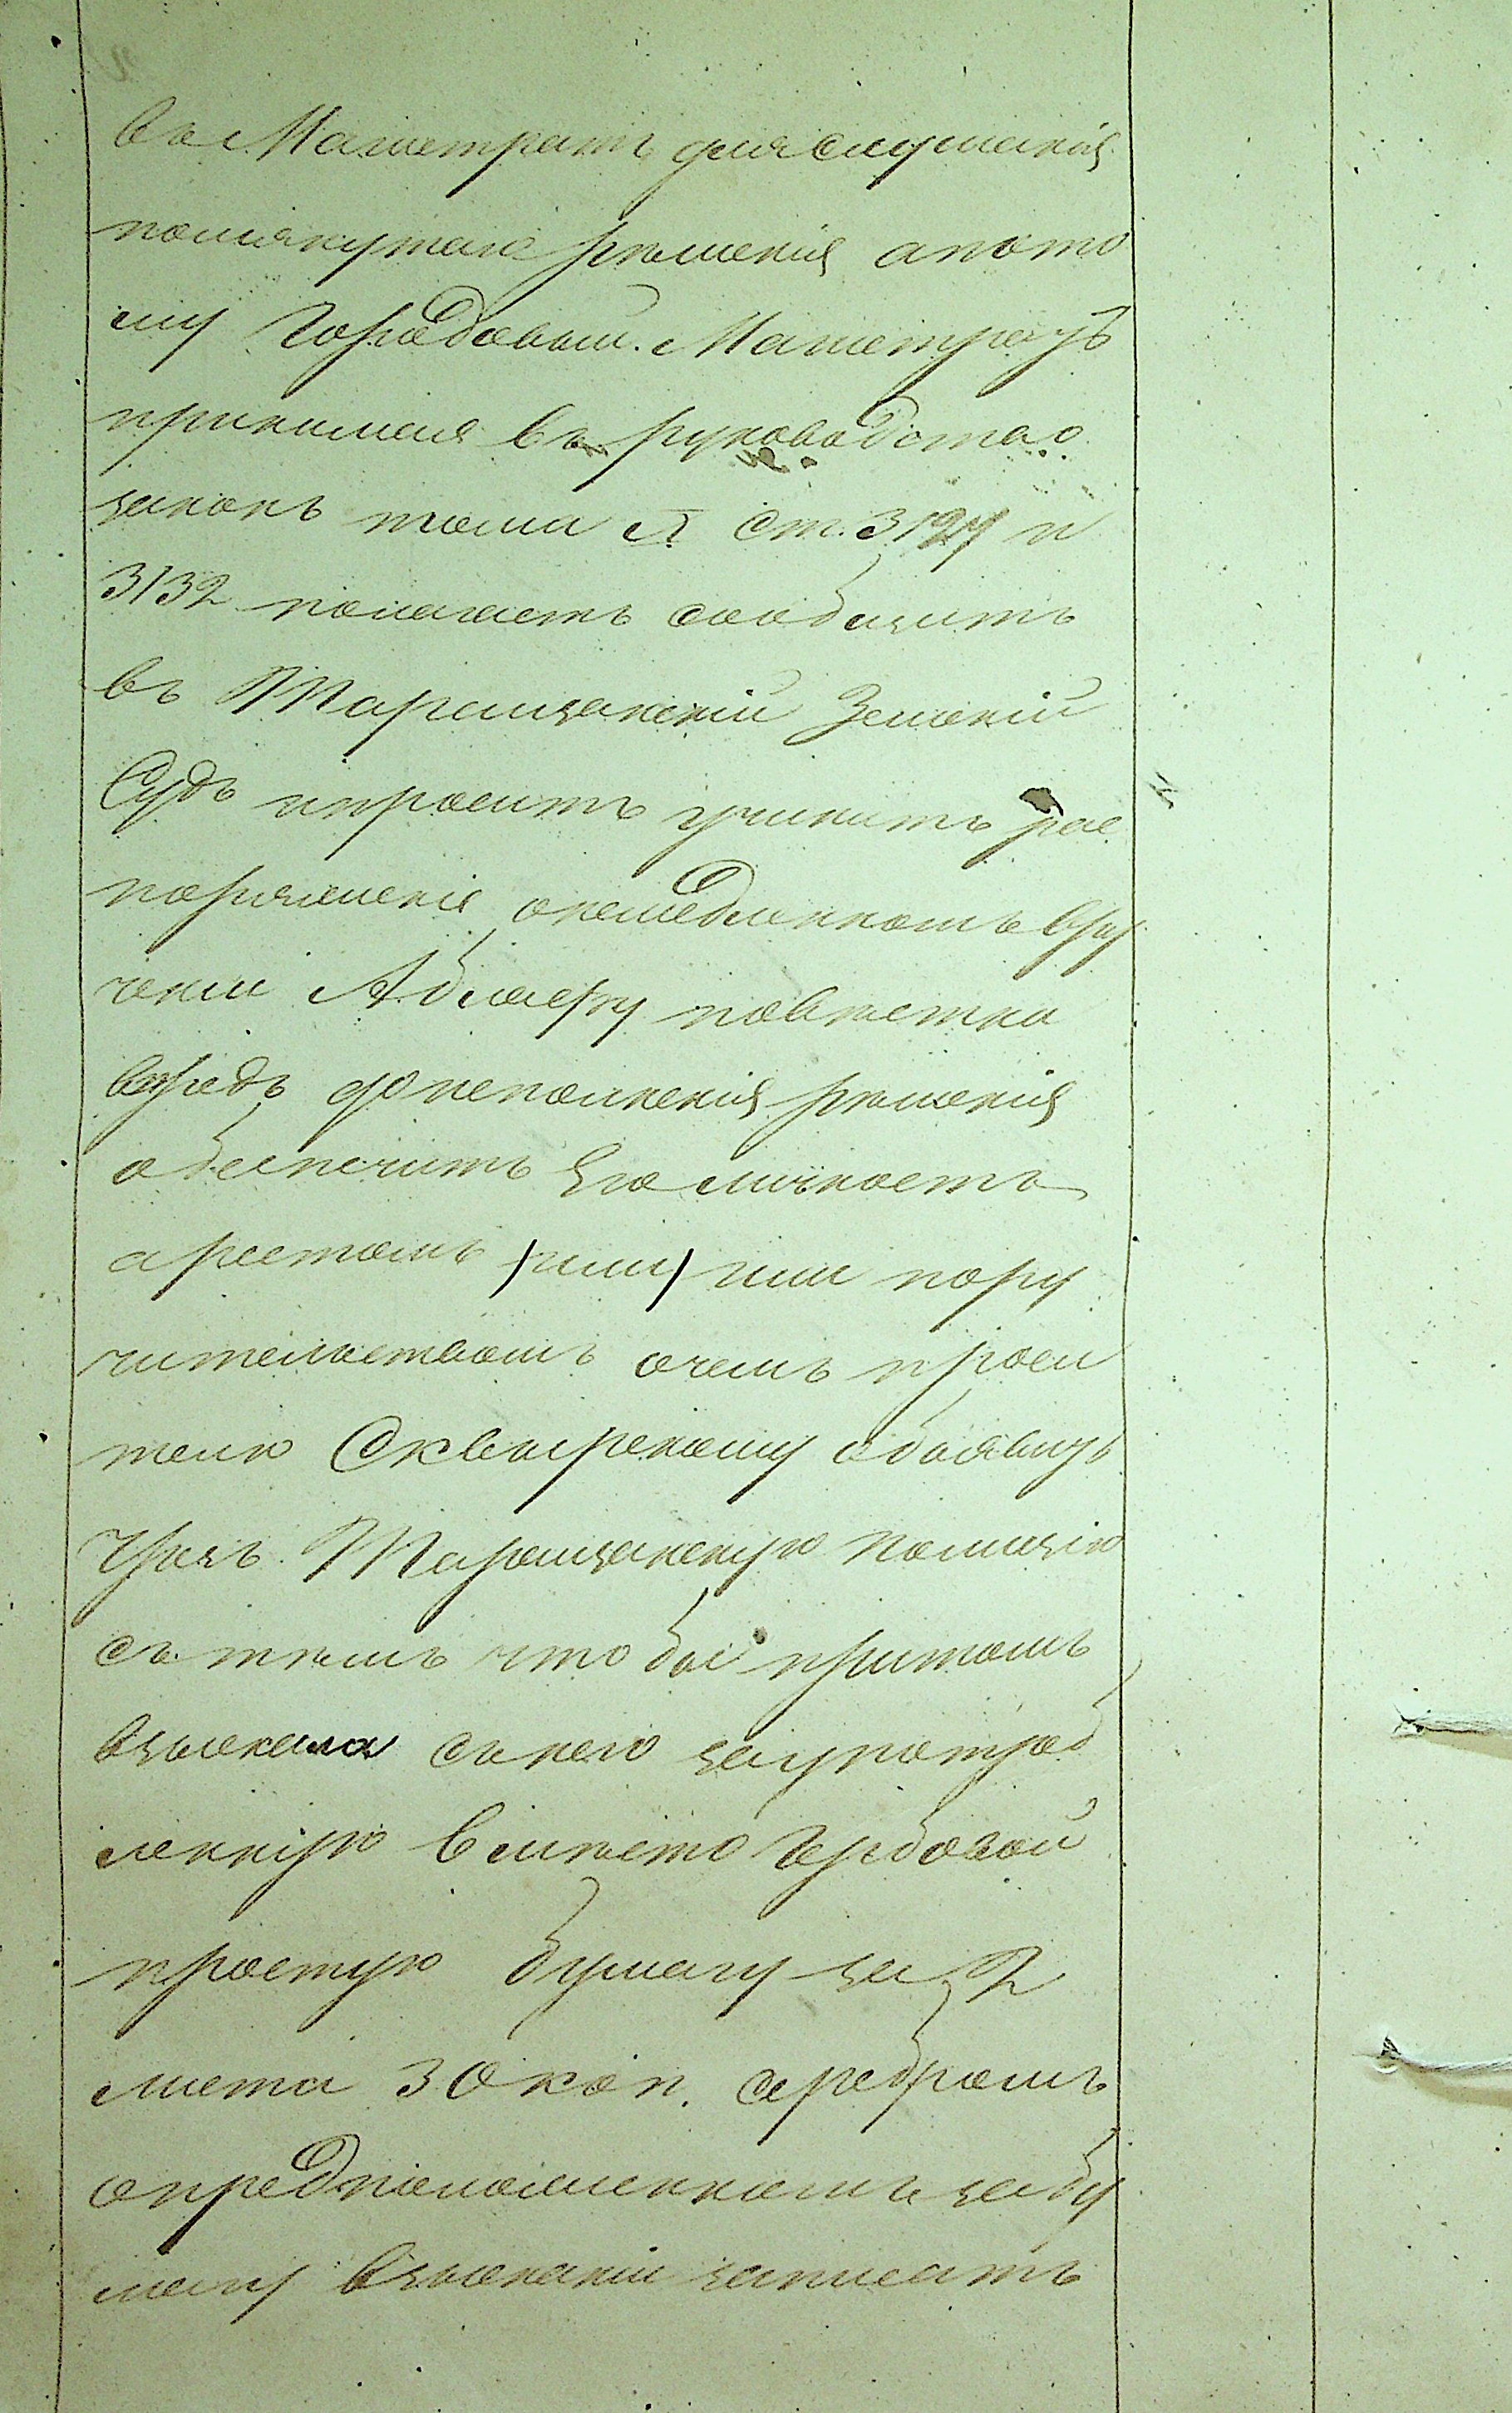 въ Магистратъ для слушанія
помянутаго рѣшенія а пото
му Городовый Магистратъ
принимая въ руководство
законъ тома X ст. 3127 и
3132 полагаетъ сообщить
въ Таращанскій Земскій
Судъ и просить учинить рас
поряженіе о немедленномъ вру
ченіи повѣстки
впредь до исполненія рѣшенія
обеспечить Его личность
арестомъ /или/ или пору
чительствомъ о чемъ проси
телю Сквирскому объявить
чрезъ Таращанскую Полицію
съ тѣмъ что бы притомъ
взыскала съ него за употреб
ленную вмѣсто Гербовой
простую бумагу за 2
листа 30 коп. серебромъ
о предположенномъ за бу
магу взысканіи записать